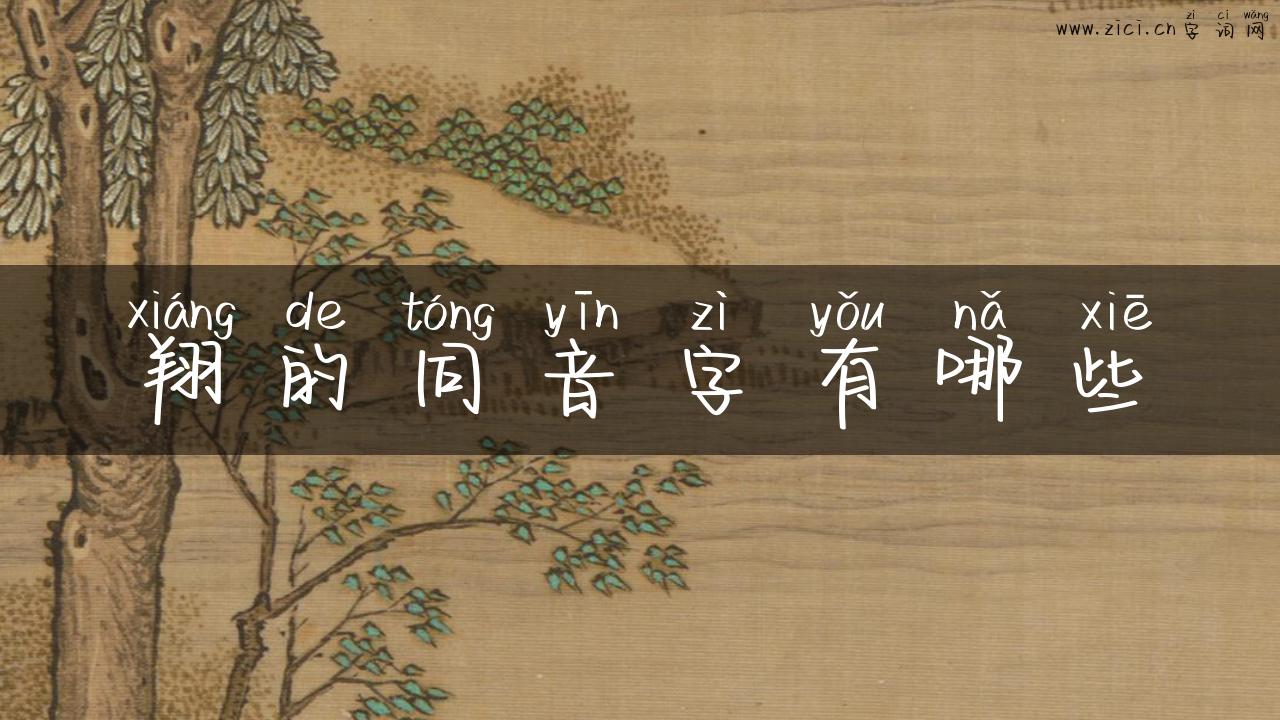 zì cí wǎng
www.zici.cn 字词网
xiáng de tóng yīn zì yǒu nǎ xiē
翔的同音字有哪些